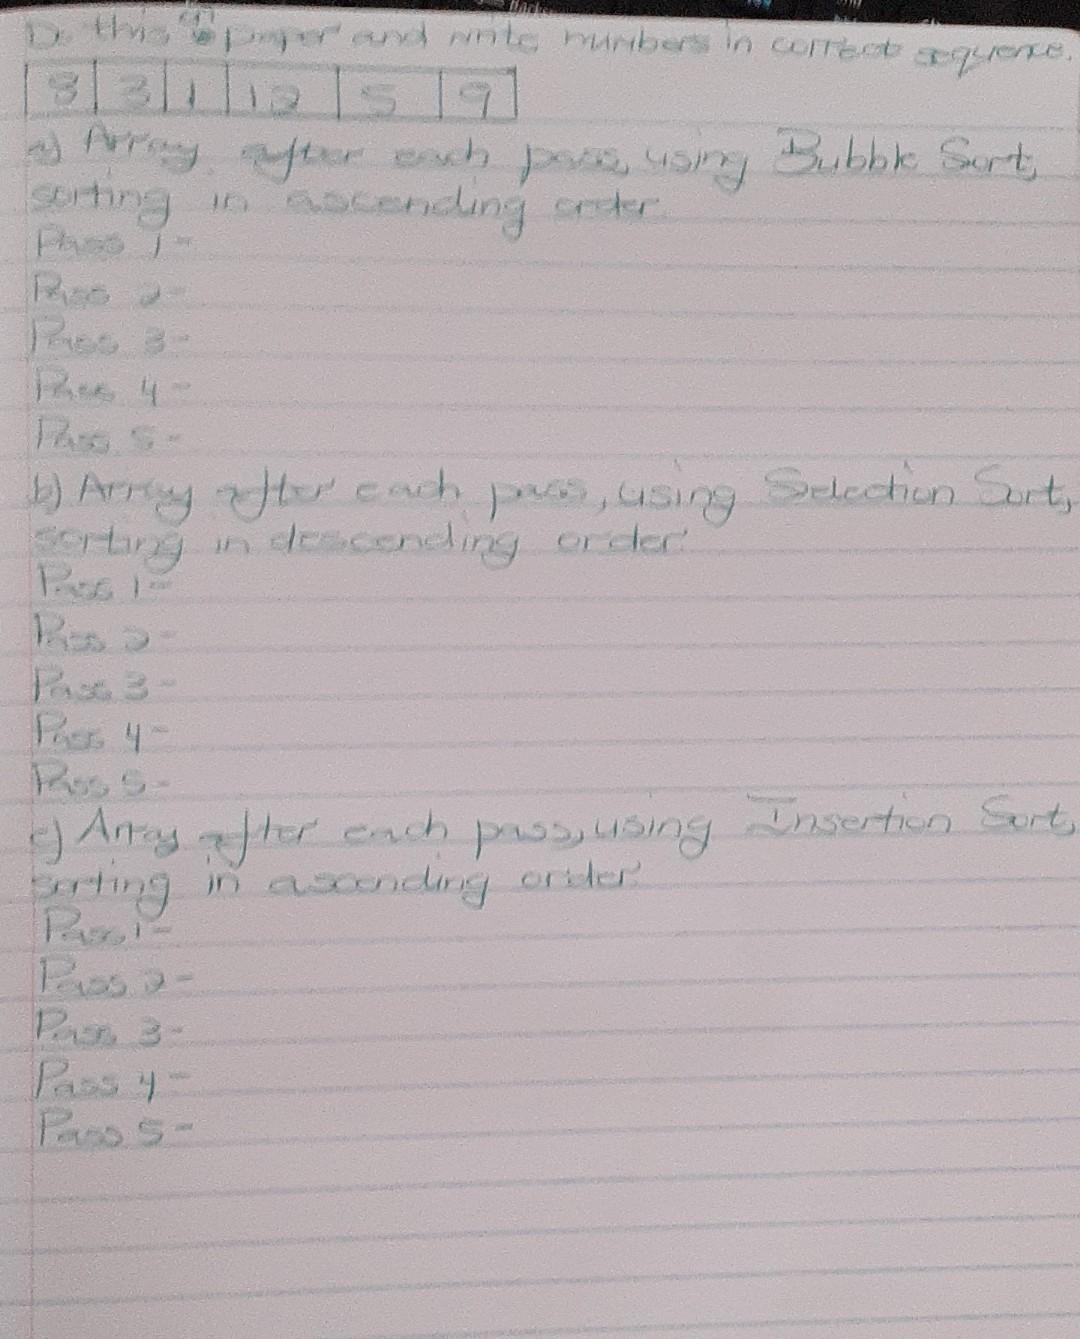 Do this on paper and write numbers in correct sequence.
8 3 1 12 5 9
a) Array after each pass, using Bubble Sort,
sorting in ascending order.
Pass 1-
Pass 2-
Pass 3-
Pass 4-
Pass 5-
b) Array after each pass, using Selection Sort,
sorting in descending order.
Pass 1-
Pass 2-
Pass 3-
Pass 4-
Pass 5-
c) Array after each pass, using Insertion Sort,
sorting in ascending order.
Pass 1-
Pass 2-
Pass 3-
Pass 4-
Pass 5-